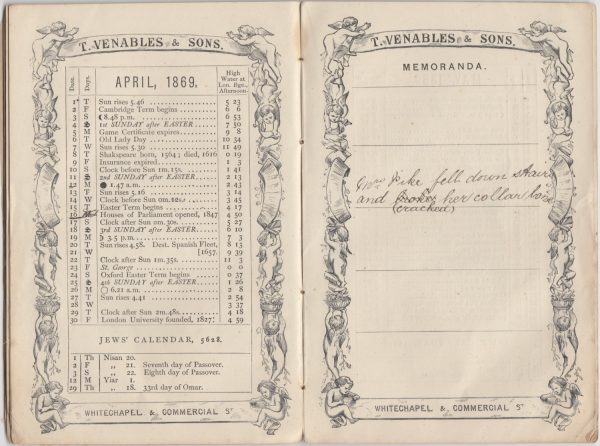 T. VENABLES & SONS.
Date. Days. APRIL, 1869. High Water at Lon. Bge. Afternoon.
1 T Sun rises 5.46 5 23
2 F Cambridge Term begins 6 6
3 S 8.48 p.m. 6 53
4 S 1st SUNDAY after EASTER 7 50
5 M Game Certificate expires 9 8
6 T Old Lady Day 10 34
7 W Sun rises 5.30 11 49
8 T Shakspeare born, 1564; died, 1616 0 19
9 F Insurance expired 1 3
10 S Clock before Sun 1m. 15s. 1 41
11 S 2nd SUNDAY after EASTER 2 13
12 M ● 1.47 a.m. 2 43
13 T Sun rises 5.16 3 14
14 W Clock before Sun 0m. 12s. 3 45
15 T Easter Term begins 4 17
16 Houses of Parliament opened, 1847 4 50
17 S Clock after Sun 0m. 30s. 5 27
18 S 3rd SUNDAY after EASTER 6 10
19 M 3.5 p.m. 7 3
20 T Sun rises 4.58. Dest. Spanish Fleet, 8 13
21 W [1657. 9 39
22 T Clock after Sun 1m. 35s. 11 3
23 F St. George 0 0
24 S Oxford Easter Term begins 0 37
25 S 4th SUNDAY after EASTER 1 26
26 M ○ 6.21 a.m. 2 8
27 T Sun rises 4.41 2 54
28 W 3 37
29 T Clock after Sun 2m. 48s. 4 18
30 F London University founded, 1827 4 59
JEWS' CALENDAR, 5628.
1 Th Nisan 20.
2 F ,, 21. Seventh day of Passover.
3 S ,, 22. Eighth day of Passover.
12 M Yiar 1.
29 Th ,, 18. 33rd day of Omar.
WHITECHAPEL & COMMERCIAL ST
T. VENABLES & SONS.
MEMORANDA.
Pike fell down Stairs
and broke her collar bone
(cracked)
WHITECHAPEL & COMMERCIAL ST